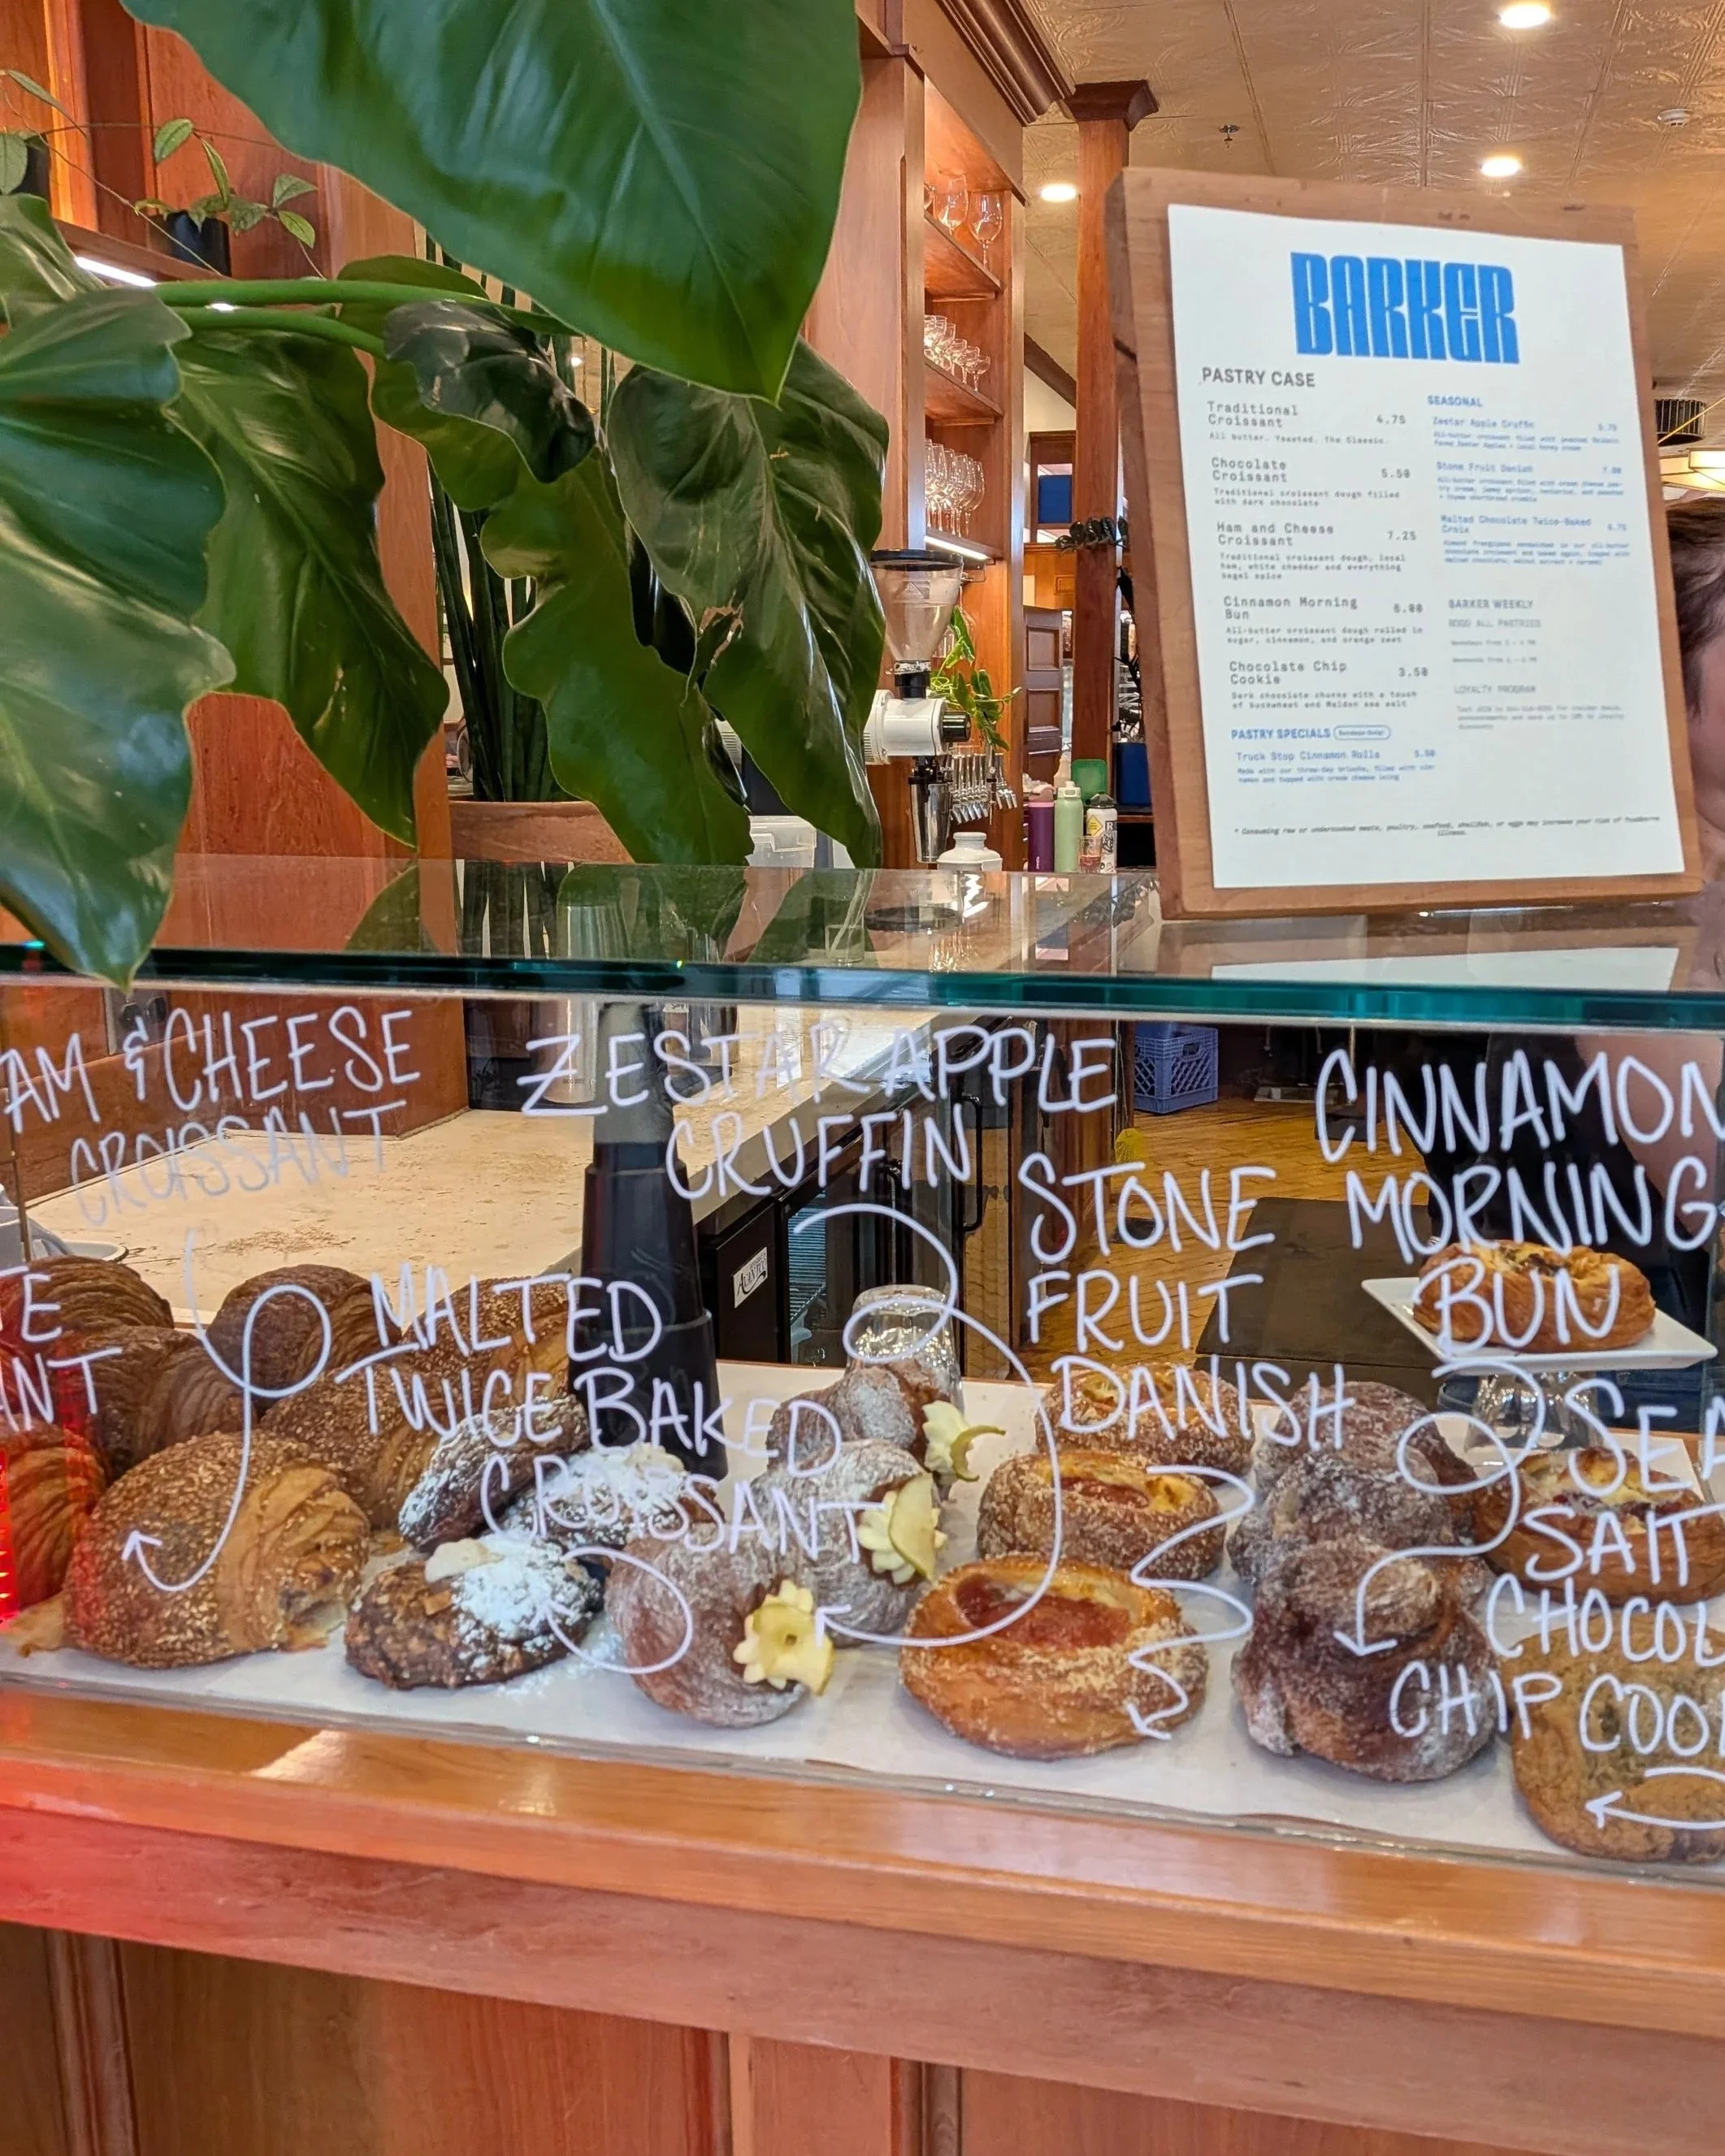 BARKER
PASTRY CASE
Traditional
Croissant
4.75
All butter. Yeasted. The Classic.
Chocolate
Croissant
5.50
Traditional croissant dough filled
with dark chocolate
Ham and Cheese
Croissant
7.25
Traditional croissant dough, local
ham, white cheddar and everything
bagel spice
Cinnamon Morning
Bun
6.00
All-butter croissant dough rolled in
sugar, cinnamon, and orange zest
Chocolate Chip
Cookie
3.50
Dark chocolate chunks with a touch
of buckwheat and Maldon sea salt
PASTRY SPECIALS
Truck Stop Cinnamon Rolls
5.50
SEASONAL
Zestar Apple Cruffin
5.75
Stone Fruit Danish
7.00
Malted Chocolate Twice-Baked
Croix
6.75
BARKER WEEKLY
BOGO ALL PASTRIES
LOYALTY PROGRAM
* Consuming raw or undercooked meats, poultry, seafood, shellfish, or eggs may increase your risk of foodborne
illness.
AM & CHEESE
CROISSANT
ZESTAR APPLE
CRUFFIN
STONE
FRUIT
DANISH
CINNAMON
MORNING
BUN
E
ANT
MALTED
TWICE BAKED
CROISSANT
SEA
SALT
CHOCOL
CHIP COO